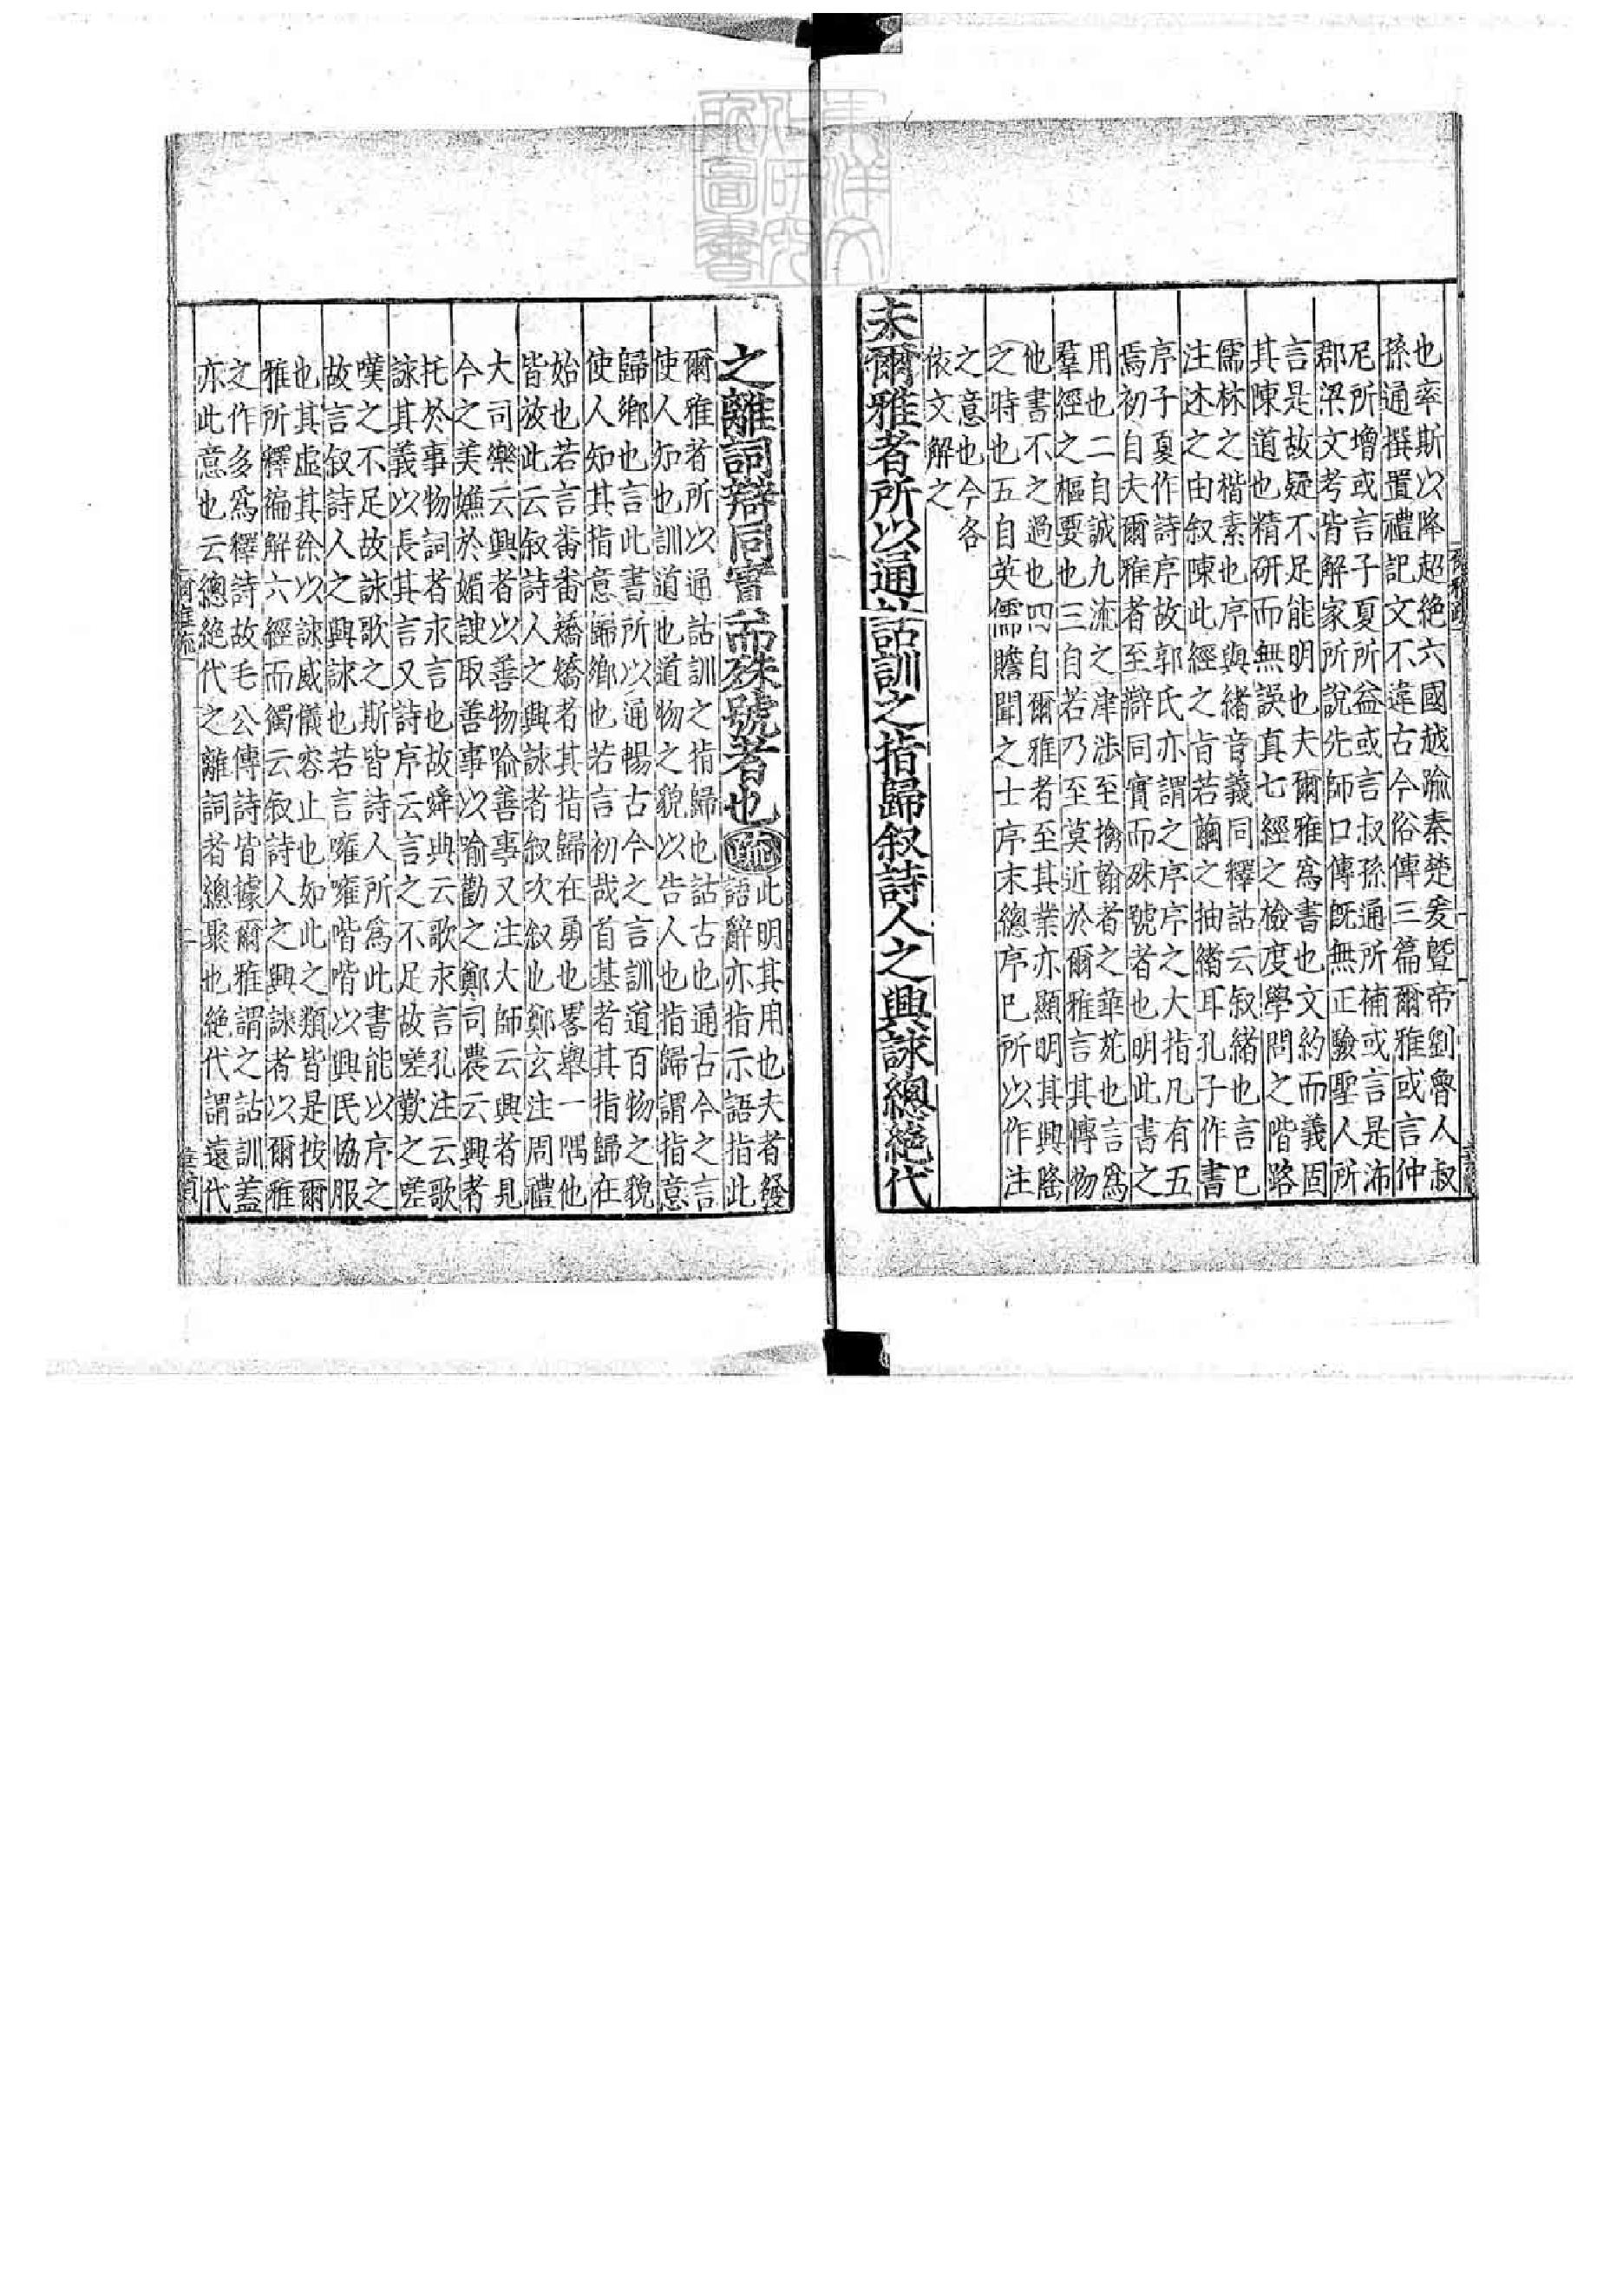 也率斯以降超絶六國越踰秦楚爰曁帝劉魯人叔
孫通撰置禮記文不違古今俗傳三篇爾雅或言仲
尼所增或言子夏所益或言叔孫通所補或言是沛
郡梁文考皆解家所說先師口傳旣無正驗聖人所
言是故疑不足能明也夫爾雅爲書也文約而義固
其陳道也精研而無誤真七經之檢度學問之階路
儒林之楷素也序與緒音義同釋詁云叙緒也言巳
注述之由叙陳此經之旨若繭之抽緒耳孔子作書
序子夏作詩序故郭氏亦謂之序序之大指凡有五
焉初自夫爾雅者至辯同實而殊號者也明此書之
用也二自誠九流之津涉至摛翰者之華苑也言爲
羣經之樞要也三自若乃至莫近於爾雅言其愽物
他書不之過也四自爾雅者至其業亦顯明其興隆
之時也五自英儒贍聞之士序末總序巳所以作注
之意也今各
依文解之
夫爾雅者所以通詁訓之指歸叙詩人之興詠總絶代
之離詞辯同實而殊號者也疏
此明其用也夫者發
語辭亦指示語指此
爾雅者所以通詁訓之指歸也詁古也通古今之言
使人知也訓道也道物之貌以告人也指歸謂指意
歸鄉也言此書所以通暢古今之言訓道百物之貌
使人知其指意歸鄉也若言初哉首基者其指歸在
始也若言番番矯矯者其指歸在勇也畧舉一隅他
皆放此云叙詩人之興詠者叙次叙也鄭玄注周禮
大司樂云興者以善物喻善事又注大師云興者見
今之美嫌於媚諛取善事以喻勸之鄭司農云興者
托於事物詞者永言也故舜典云歌永言孔注云歌
詠其義以長其言又詩序云言之不足故嗟歎之嗟
嘆之不足故詠歌之斯皆詩人所爲此書能以序之
故言叙詩人之興詠也若言噰噰喈喈以興民協服
也其虛其徐以詠威儀容止也如此之類皆是按爾
雅所釋徧解六經而獨云叙詩人之興詠者以爾雅
之作多爲釋詩故毛公傳詩皆據爾雅謂之詁訓蓋
亦此意也云總絶代之離詞者總聚也絶代謂遠代
東洋文化研究所圖書